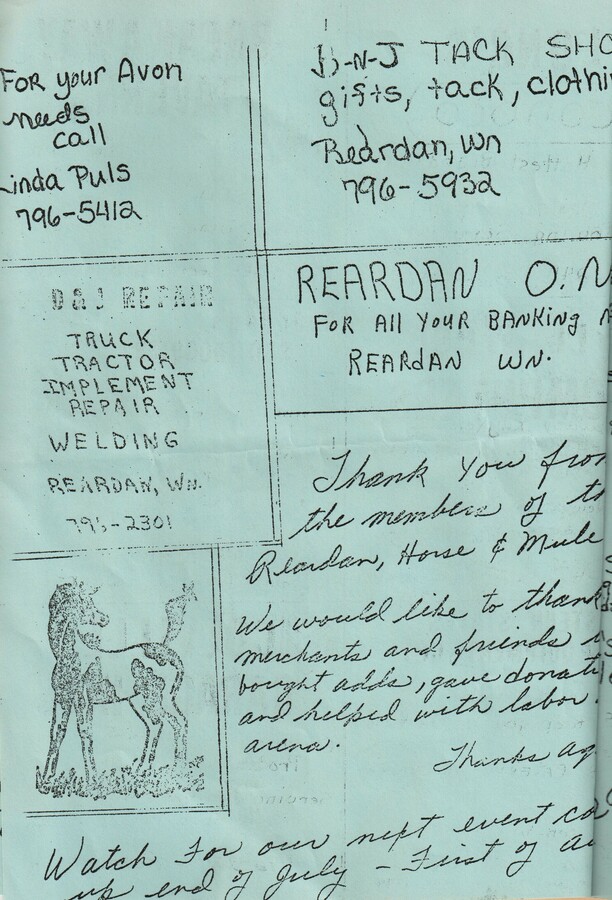 For your Avon
needs
call
Linda Puls
796-5412
J-N-J TACK SHO
gifts, tack, clothi
Reardan, Wn
796-5932
D & J REPAIR
TRUCK
TRACTOR
IMPLEMENT
REPAIR
WELDING
REARDAN, WN.
REARDAN O.N
FOR All YOUR BANKING N
REARdAN WN.
Thank You from
the members of th
Reardan, Horse & Mule
We would like to thank
merchants and friends w
bought adds, gave donati
and helped with labor
arena.
Thanks ag
Watch For our next event co
up end of July - First of au